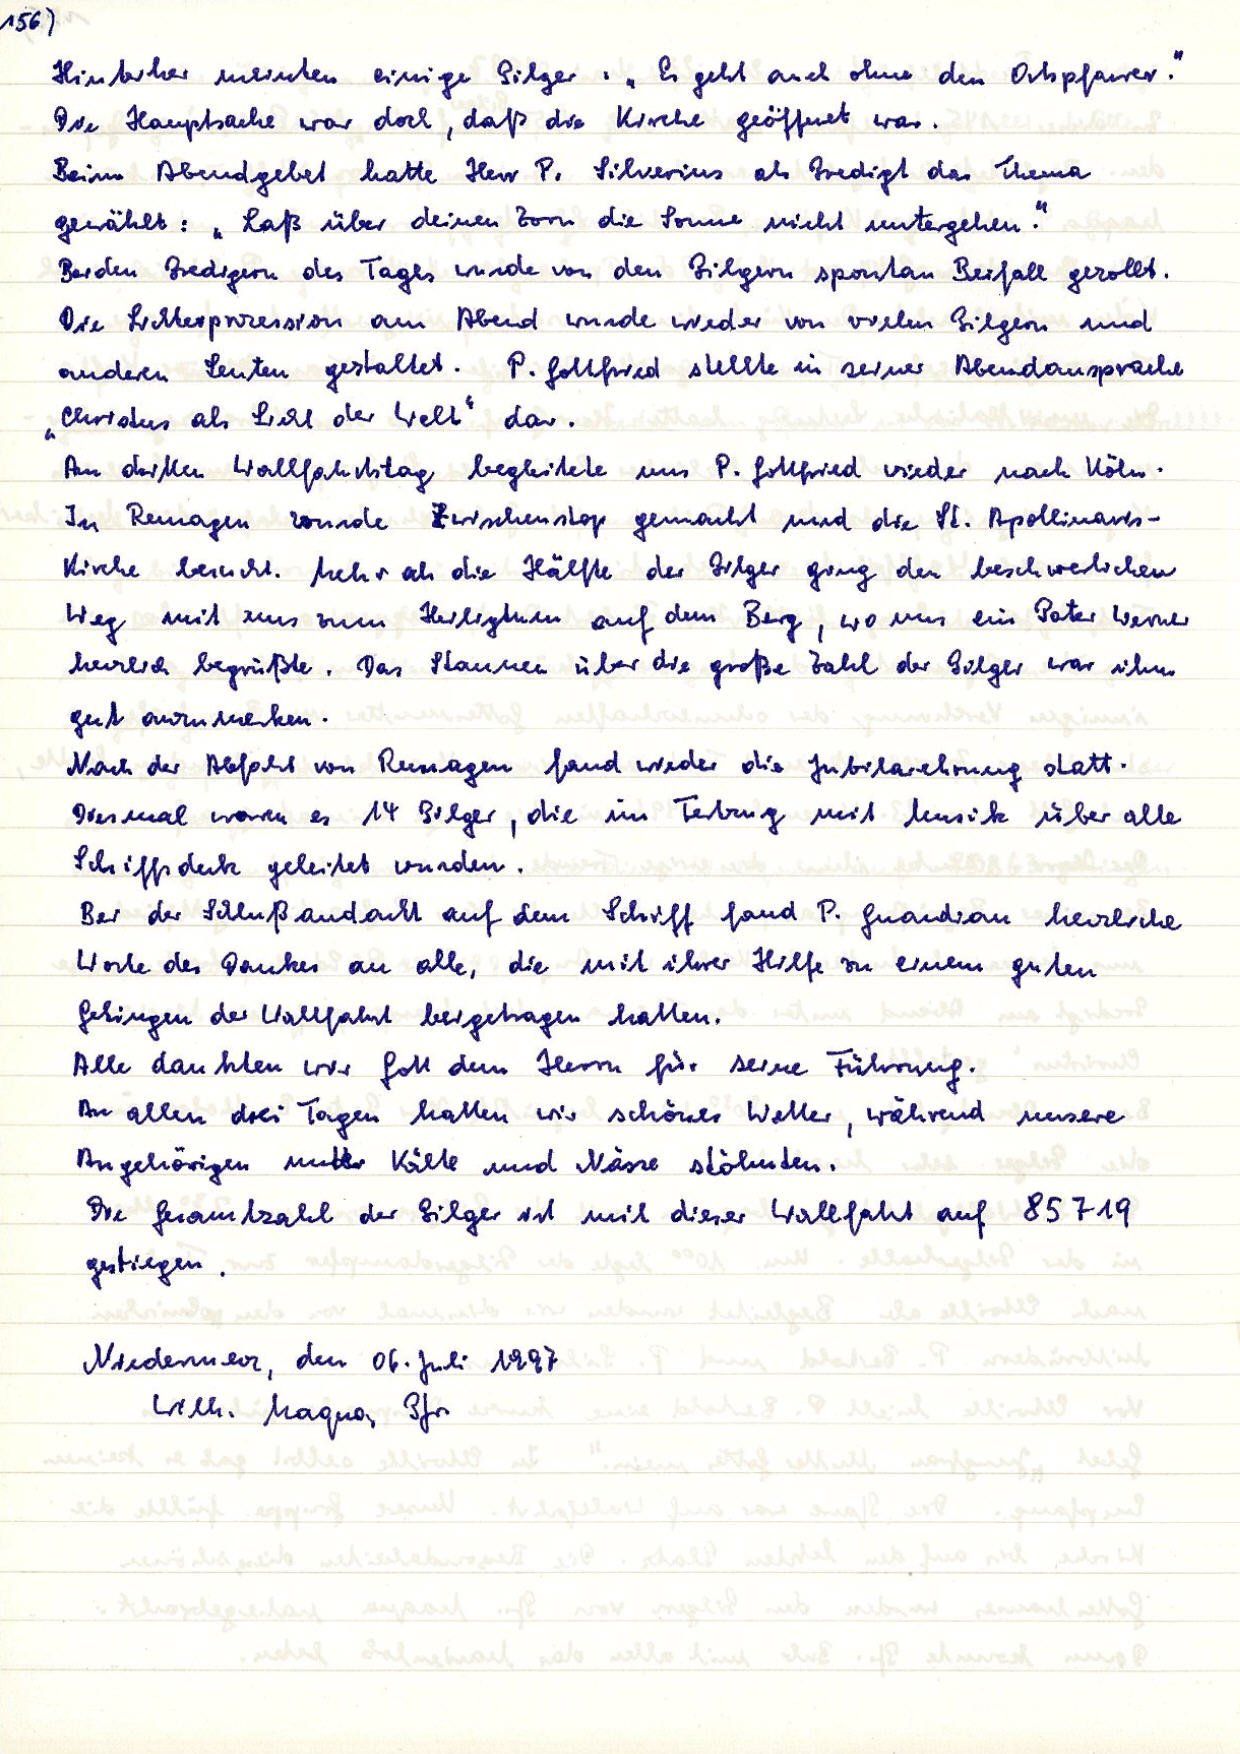 156)
Hinterher meinten einige Pilger: „Es geht auch ohne den Ortspfarrer."
Die Hauptsache war doch, daß die Kirche geöffnet war.
Beim Abendgebet hatte Herr P. Silverius als Predigt das Thema
gewählt: „Laß über deinen Zorn die Sonne nicht untergehen."
Beiden Predigern des Tages wurde von den Pilgern spontan Beifall gezollt.
Die Lichterprozession am Abend wurde wieder von vielen Pilgern und
anderen Leuten gestaltet. P. Gottfried stellte in seiner Abendansprache
„Christus als Licht der Welt" dar.
Am dritten Wallfahrtstag begleitete uns P. Gottfried wieder nach Köln.
In Remagen wurde Zwischenstop gemacht und die St. Apollinaris-
Kirche besucht. Mehr als die Hälfte der Pilger ging den beschwerlichen
Weg mit uns zum Heiligtum auf dem Berg, wo uns ein Pater Werner
herzlich begrüßte. Das Staunen über die große Zahl der Pilger war ihm
gut anzumerken.
Nach der Abfahrt von Remagen fand wieder die Jubilarehrung statt.
Diesmal waren es 14 Pilger, die im Festzug mit Musik über alle
Schiffsdeck geleitet wurden.
Bei der Schlußandacht auf dem Schiff fand P. Guardian herzliche
Worte des Dankes an alle, die mit ihrer Hilfe zu einem guten
Gelingen der Wallfahrt beigetragen hatten.
Alle dankten wir Gott dem Herrn für seine Führung.
An allen drei Tagen hatten wir schönes Wetter, während unsere
Angehörigen unter Kälte und Nässe stöhnten.
Die Gesamtzahl der Pilger ist mit dieser Wallfahrt auf 85 719
gestiegen.
Niedermerz, den 06. Juli 1997
Wilh. Maqua, Pfr.